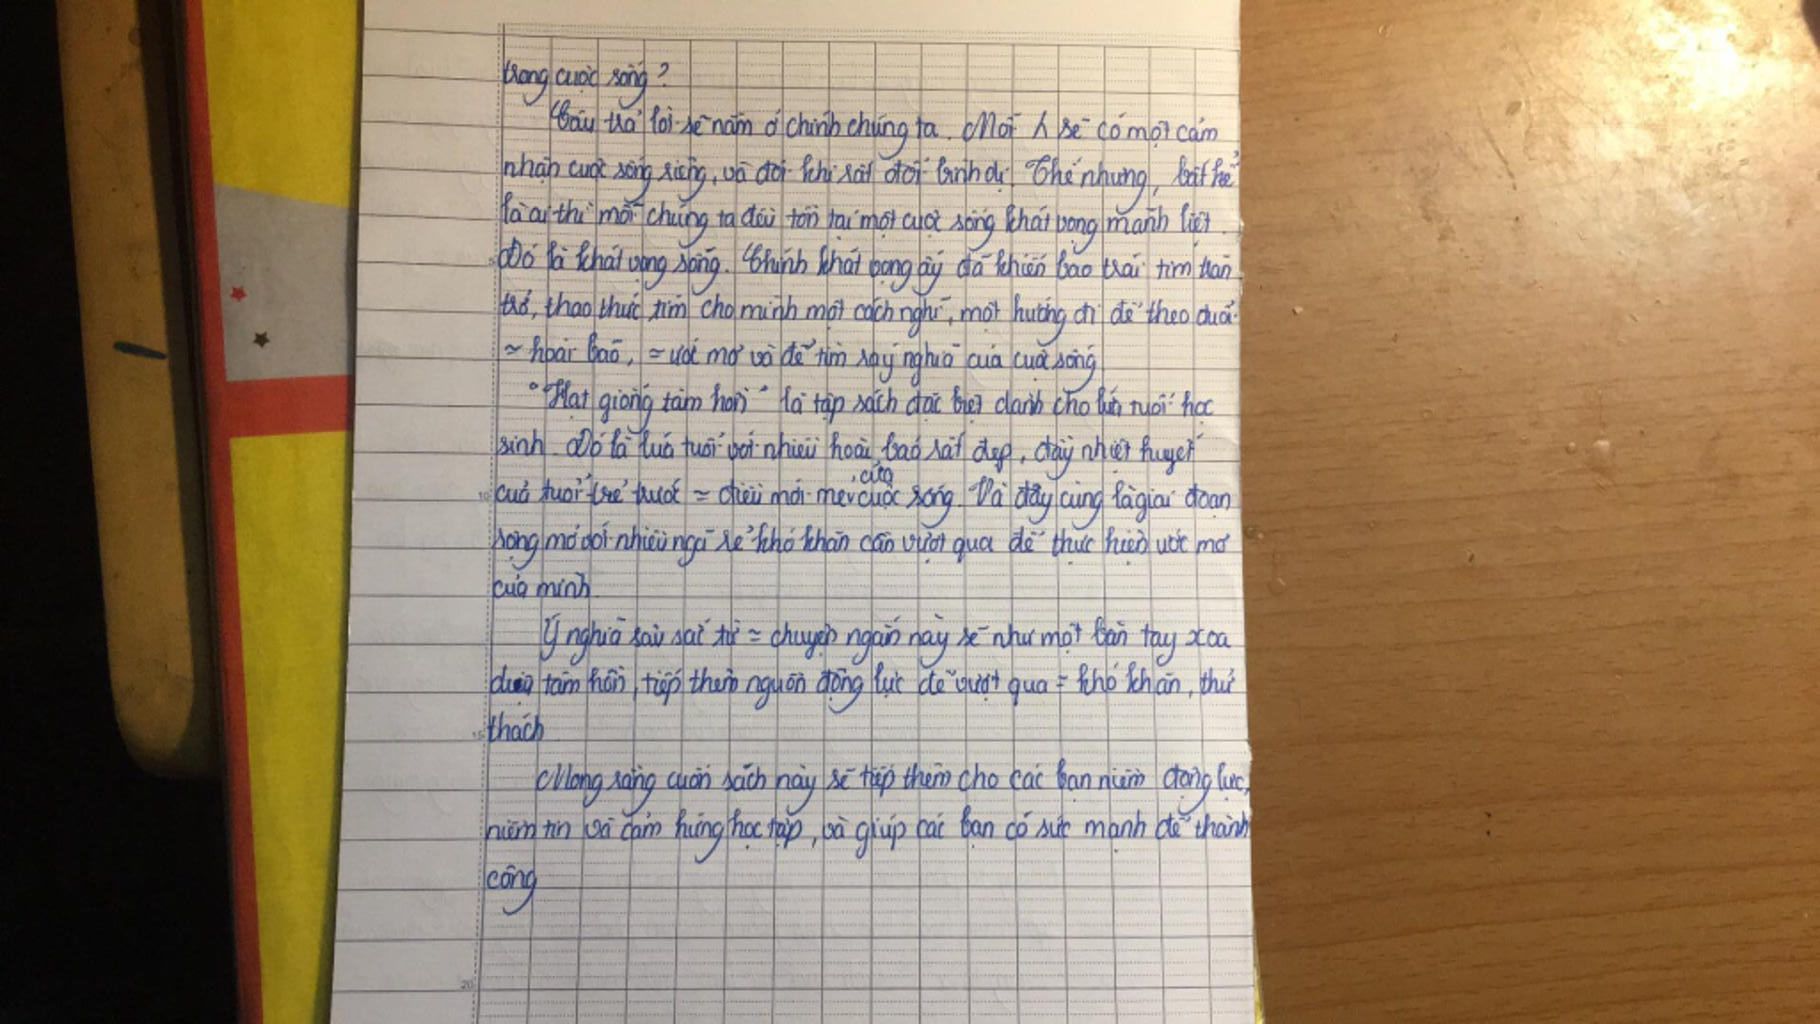 trong cuộc sống?
Câu trả lời sẽ nằm ở chính chúng ta. Mỗi sẽ có một cảm
nhận cuộc sống riêng, và đôi khi rất đỗi bình dị. Thế nhưng, bất kể
là ai thì mỗi chúng ta đều tồn tại một cuộc sống khát vọng mãnh liệt.
Đó là khát vọng sống. Chính khát vọng ấy đã khiến bao trái tim trăn
trở, thao thức tìm cho mình một cách nghĩ, một hướng đi để theo đuổi
= hoài bão, = ước mơ và để tìm ra ý nghĩa của cuộc sống
"Hạt giống tâm hồn" là tập sách đặc biệt dành cho lứa tuổi học
sinh. Đó là lứa tuổi với nhiều hoài bão rất đẹp, đầy nhiệt huyết
của tuổi trẻ trước = điều mới mẻ của cuộc sống. Và đây cũng là giai đoạn
song mở với nhiều ngã rẽ khó khăn cần vượt qua để thực hiện ước mơ
của mình
Ý nghĩa sâu sắc từ = chuyện ngắn này sẽ như một bàn tay xoa
dịu tâm hồn, tiếp thêm nguồn động lực để vượt qua = khó khăn, thử
thách
Mong rằng cuốn sách này sẽ tiếp thêm cho các bạn niềm động lực,
niềm tin và cảm hứng học tập, và giúp các bạn có sức mạnh để thành
công
10
15
20